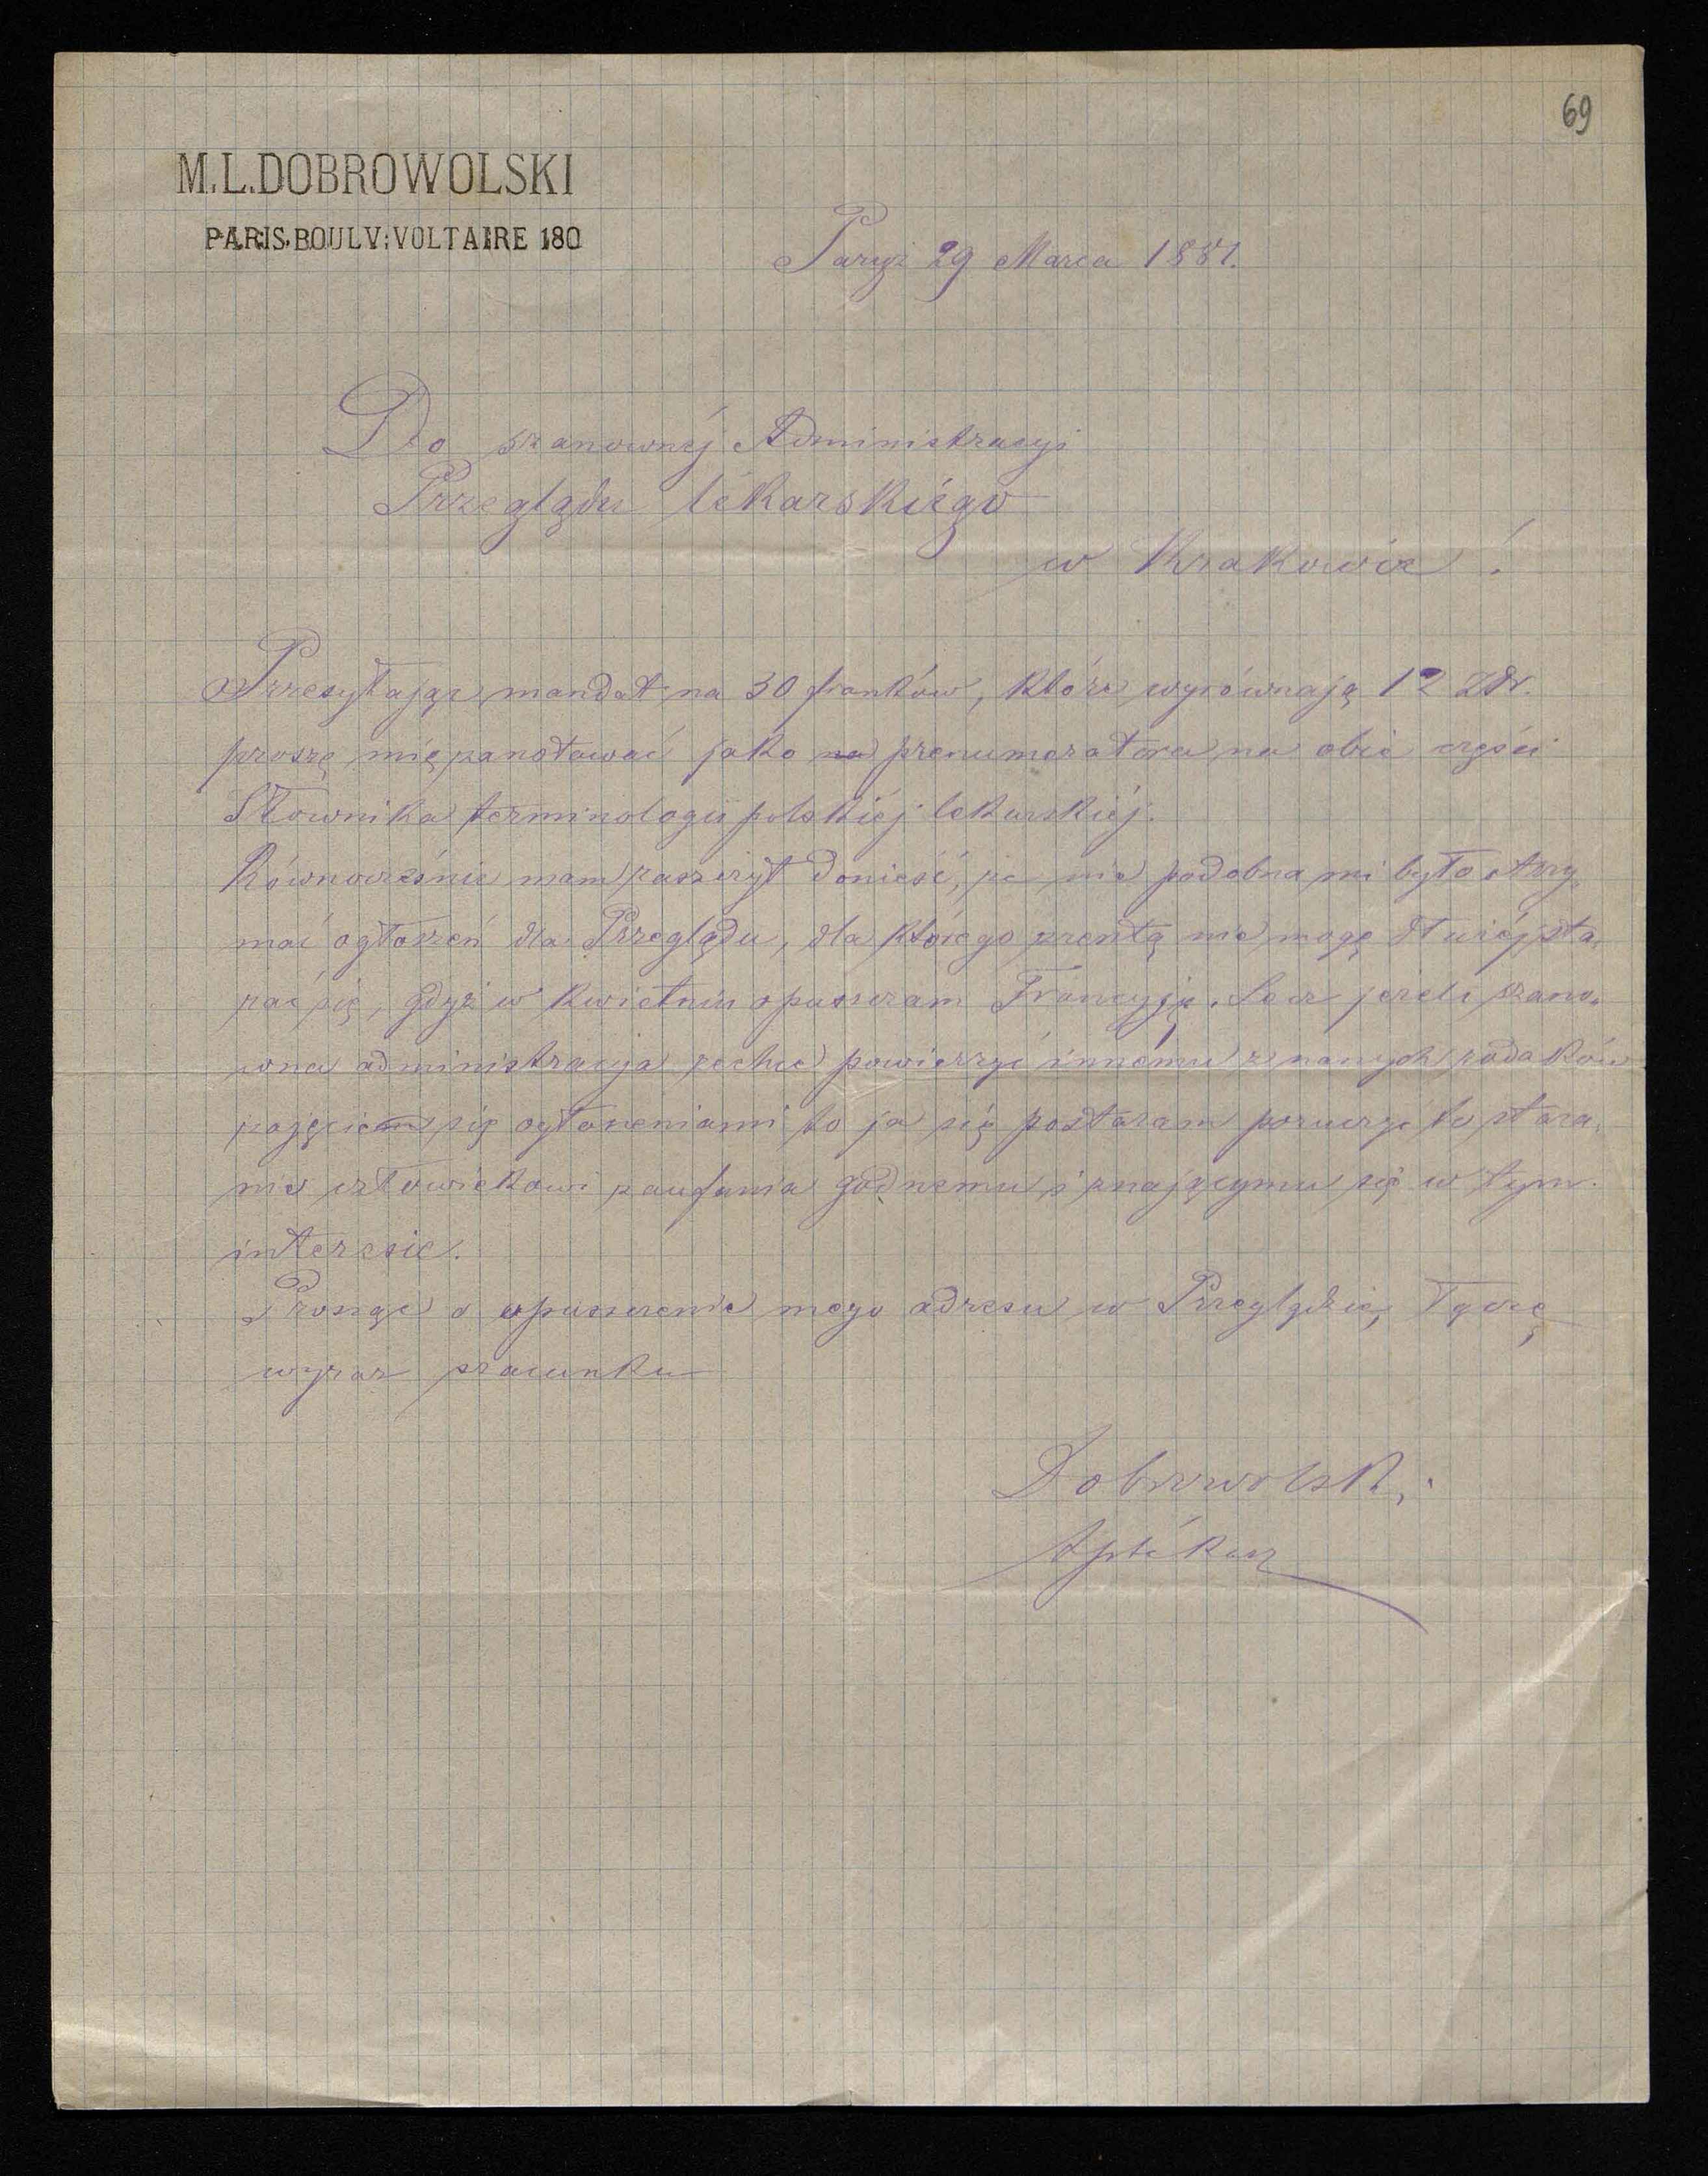 69
M.L.DOBROWOLSKI
PARIS.BOULV:VOLTAIRE 180
Paryż 29 Marca 1881.
Do szanownéj Administracyi
Przeglądu lékarskiégo
w Krakowie!
Przesyłając mandat na 30 franków, które wyrównają 12 Złr.
proszę mię zanotować jako na prenumeratora na obie części
Słownika terminologii polskiéj lekarskiéj.
Równocześnie mam zaszczyt donieść, że nie podobna mi było otrzy-
mać ogłoszeń dla Przeglądu, dla którego zresztą nie mogę dłużéj sta-
rać się, gdyż w kwietniu opuszczam Francyję. Lecz jeżeli szano-
wna administracyja zechce powierzyć innému z naszych rodaków
zajęciem się ogłoszeniami to ja się postaram poruczyć to stara-
nie człowiekowi zaufania godnemu i znającymu się w tym
interesie.
Prosząc o opuszczenie mego adresu w Przeglądzie, łączę
wyraz szacunku
Dobrowolski
Aptékarz